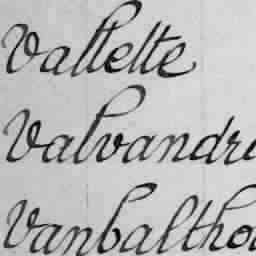 Vallette
Valvandr
Vanbaltho